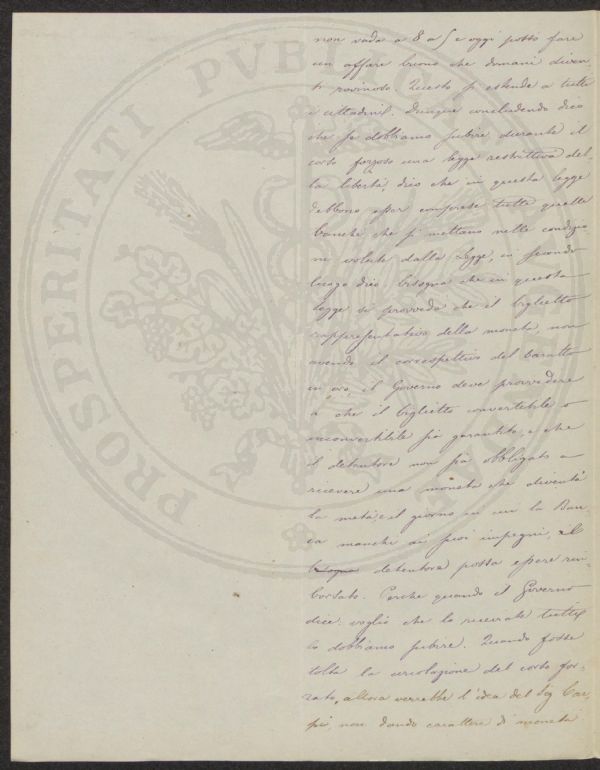 PROSPERITATI PVBLIC
non vada a 8 a 5 e oggi posso fare
un affare buono che domani diven
ti rovinoso. Questo si estende a tutti
i cittadini. Dunque concludendo dico
che se dobbiamo subire durante il
corso forzoso una legge restrittiva del-
la libertà, dico che in questa legge
debbono esser comprese tutte quelle
banche che si mettano nelle condizio-
ni volute dalla Legge, in secondo
luogo dico: bisogna che in questa
legge si provveda che il biglietto
rappresentativo della moneta, non
avendo il correspettivo del baratto
in oro, il Governo deve provvedere
a che il biglietto convertibile o
inconvertibile sia garantito, e che
il detentore non sia obbligato a
ricevere una moneta che diventa
la metà, e il giorno in cui la Ban-
ca manchi ai suoi impegni, il
detentore possa essere rim-
borsato. Perchè quando il Governo
dice: voglio che la riceviate tutti
lo dobbiamo subire. Quando fosse
tolta la circolazione del corso for-
zato, allora verrebbe l'idea del Sig
non dando carattere di moneta